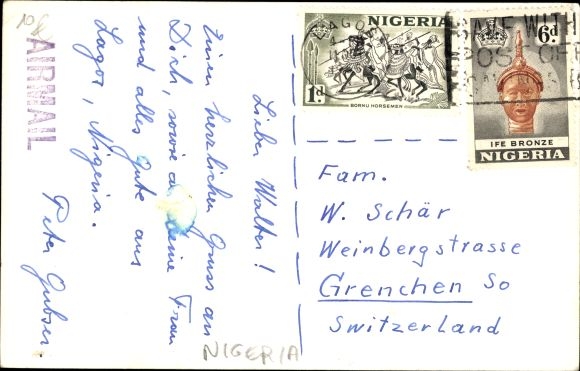 10
AIRMAIL
Lieber Walter!
Einen herzlichen Gruss an
Dich, sowie an Deine Frau
und alles Gute aus
Lagos, Nigeria.
Peter
NIGERIA
LAGOS
NIGERIA
1d
BORNU HORSEMEN
SAVE WITH
POST OFFI
6d
IFE BRONZE
NIGERIA
Fam.
W. Schär
Weinbergstrasse
Grenchen So
Switzerland